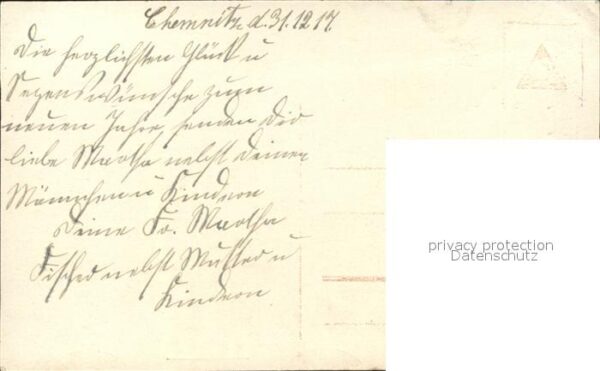 Chemnitz d. 31.12.17.
Die herzlichsten Glück u
Segenswünsche zum
neuen Jahre, senden Dir
liebe Martha nebst Deinen
Männchen u Kindern
Deine Fr. Martha
Fischer nebst Mutter u
Kindern
privacy protection
Datenschutz